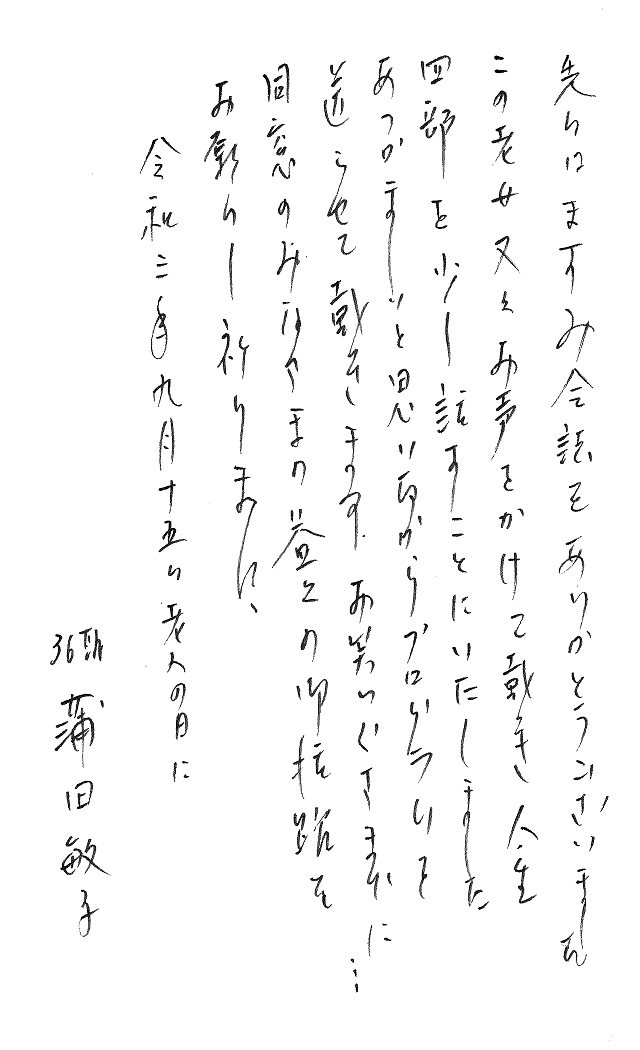 先日はますみ会誌をありがとうございました
この老女又々お声をかけて戴き人生
四部を少し話すことにいたしました
あつかましいと思い乍がらプログラムを
送らせて戴きます。お笑いくださまに…
同窓のみなさまの益々の御活躍を
お願いし祈ります、
令和三年九月十五日老人の日に
36期 蒲田敏子